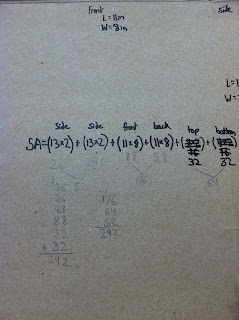 front
side
L=11in
W=8in
L=1
W=
side side front back top bottom
SA=(13×2)+(13×2)+(11×8)+(11×8)+( +(
32 32
26
52
88 88
64
26
26
88
88
32
+ 32
292
176
64
52
292